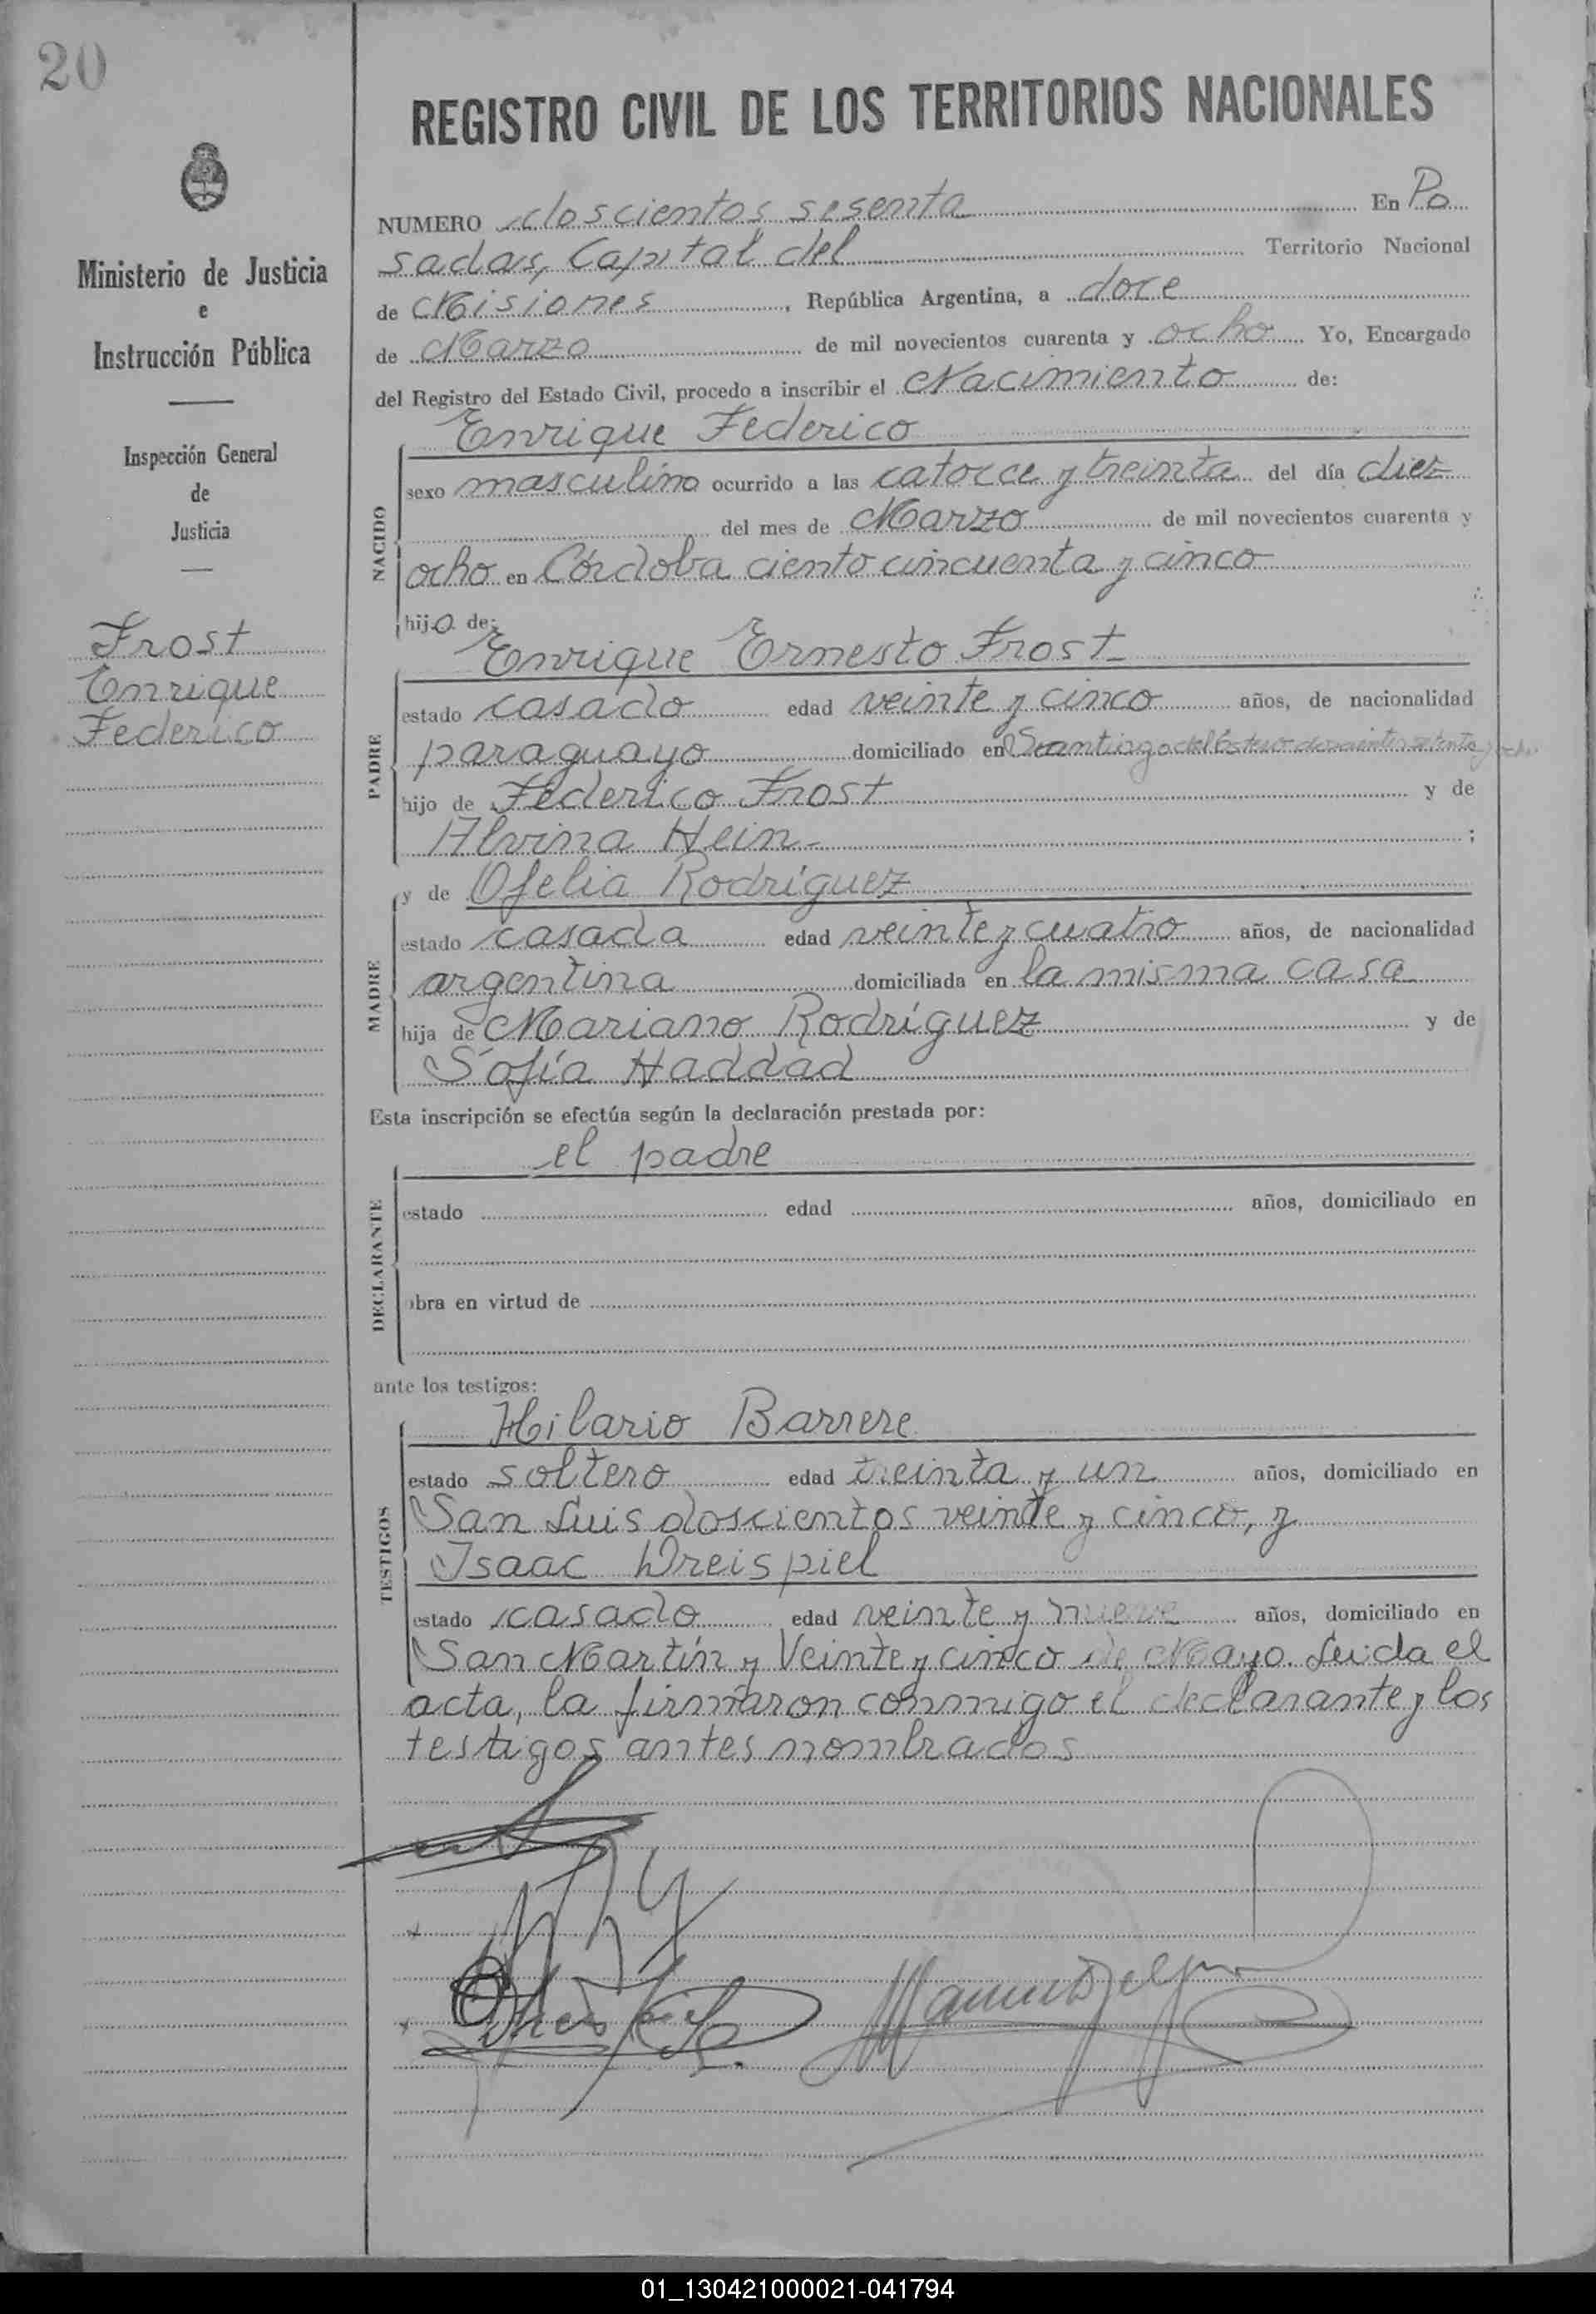 20
Ministerio de Justicia
e
Instrucción Pública
Inspección General
de
Justicia
Frost
Enrique
Federico
REGISTRO CIVIL DE LOS TERRITORIOS NACIONALES
NUMERO doscientos sesenta En Po
sadas, Capital del Territorio Nacional
de Misiones, República Argentina, a doce
de Marzo de mil novecientos cuarenta y ocho Yo, Encargado
del Registro del Estado Civil, procedo a inscribir el Nacimiento de:
NACIDO
Enrique Federico
sexo masculino ocurrido a las catorce y treinta del día diez
del mes de Marzo de mil novecientos cuarenta y
ocho en Córdoba ciento cincuenta y cinco
hijo de:
PADRE
Enrique Ernesto Frost
estado casado edad veinte y cinco años, de nacionalidad
paraguayo domiciliado en Santiago del Estero doscientos setenta y ocho
hijo de Federico Frost y de
Alvina Hein ;
MADRE
y de Ofelia Rodríguez
estado casada edad veinte y cuatro años, de nacionalidad
argentina domiciliada en la misma casa
hija de Mariano Rodríguez y de
Sofía Haddad
Esta inscripción se efectúa según la declaración prestada por:
DECLARANTE
el padre
estado edad años, domiciliado en
obra en virtud de
ante los testigos:
TESTIGOS
Hilario Barrere
estado soltero edad treinta y un años, domiciliado en
San Luis doscientos veinte y cinco, y
Isaac Dreispiel
estado casado edad veinte y nueve años, domiciliado en
San Martín y Veinte y cinco de Mayo. Leida el
acta, la firmaron conmigo el declarante y los
testigos antes nombrados
01_130421000021-041794